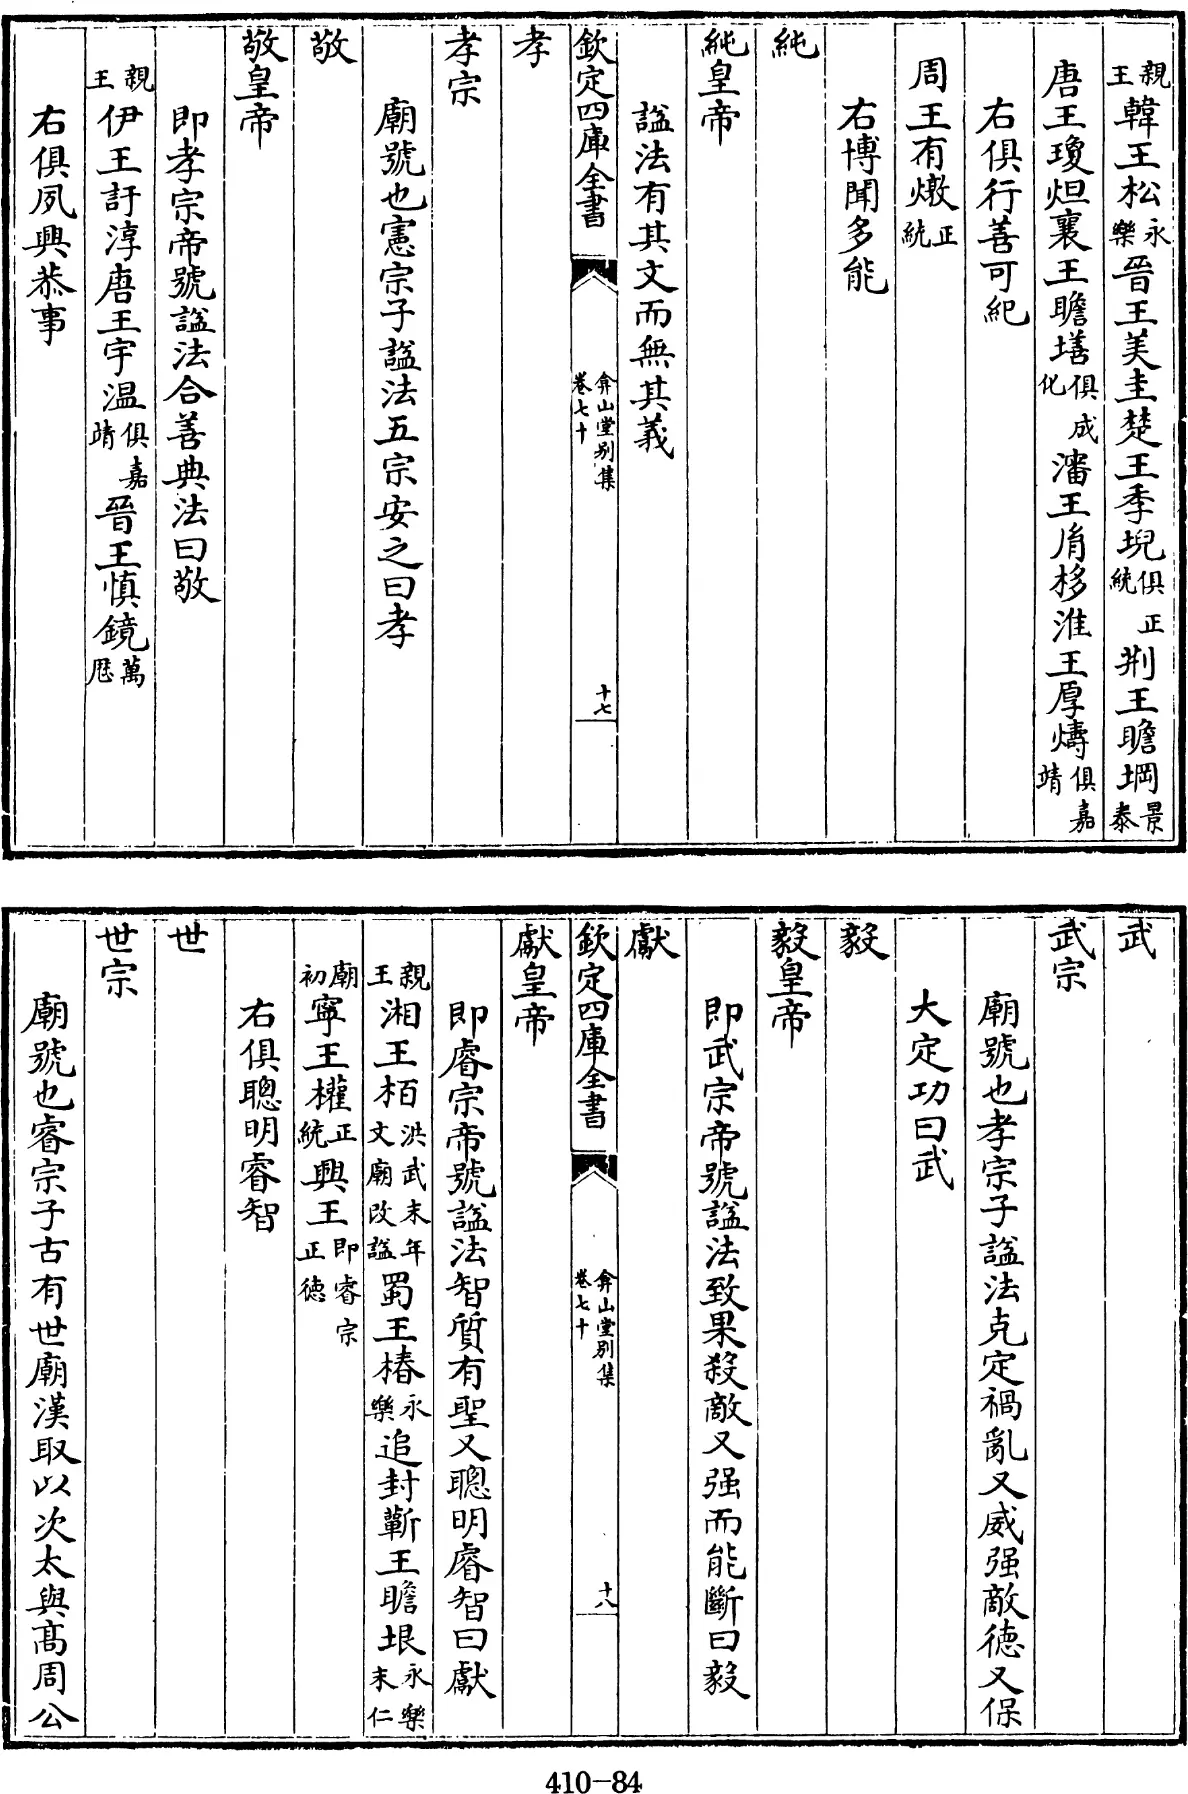 親王韓王松永樂晉王美圭楚王季堄俱正統荆王瞻堈景泰
唐王瓊炟襄王瞻墡俱成化瀋王胤栘淮王厚燽俱嘉靖
右俱行善可紀
周王有燉正統
右博聞多能
純
純皇帝
諡法有其文而無其義
欽定四庫全書 弇山堂别集卷七十 十七
孝
孝宗
廟號也憲宗子諡法五宗安之曰孝
敬
敬皇帝
即孝宗帝號諡法合善典法曰敬
親王伊王訏淳唐王宇温俱嘉靖晉王慎鏡萬厯
右俱夙興恭事
武
武宗
廟號也孝宗子諡法克定禍亂又威强敵德又保
大定功曰武
毅
毅皇帝
即武宗帝號諡法致果殺敵又强而能斷曰毅
欽定四庫全書 弇山堂别集卷七十 十八
獻
獻皇帝
即睿宗帝號諡法智質有聖又聰明睿智曰獻
親王湘王栢洪武末年文廟改諡蜀王椿永樂追封蘄王瞻垠永樂末仁
廟初寧王權正統興王即睿宗正德
右俱聰明睿智
世
世宗
廟號也睿宗子古有世廟漢取以次太與髙周公
410-84